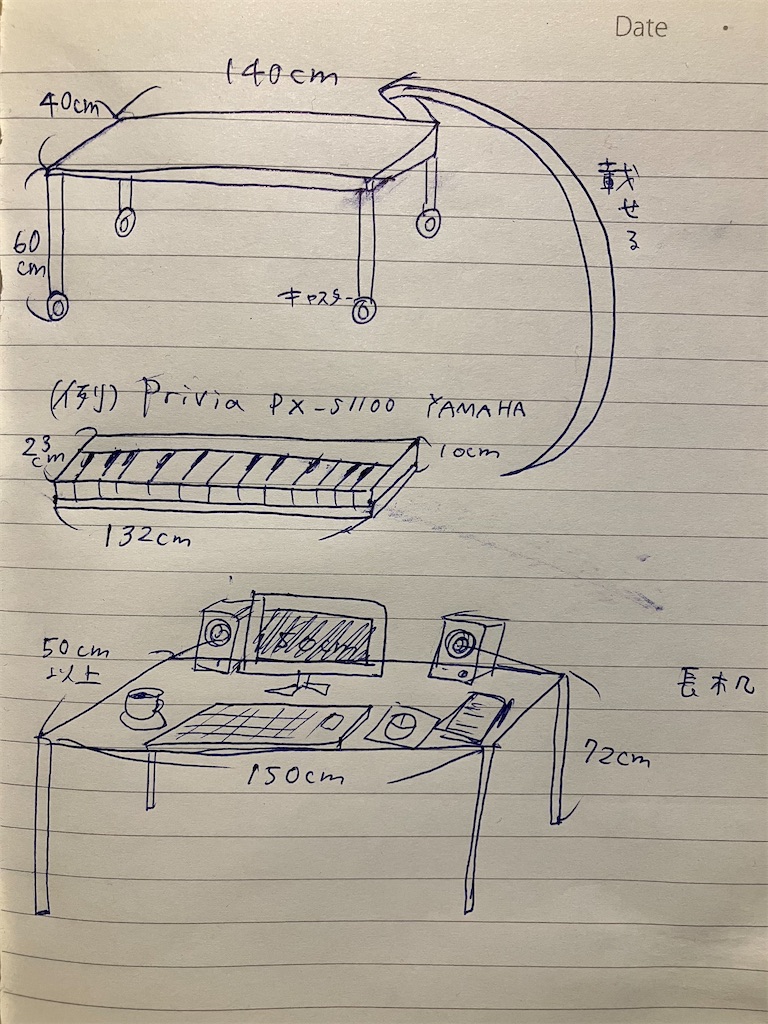 Date
140cm
40cm
載せる
60
cm
キャスター
(例) Privia PX-S1100 YAMAHA
23
cm
10cm
132cm
50cm
以上
長机
72cm
150cm